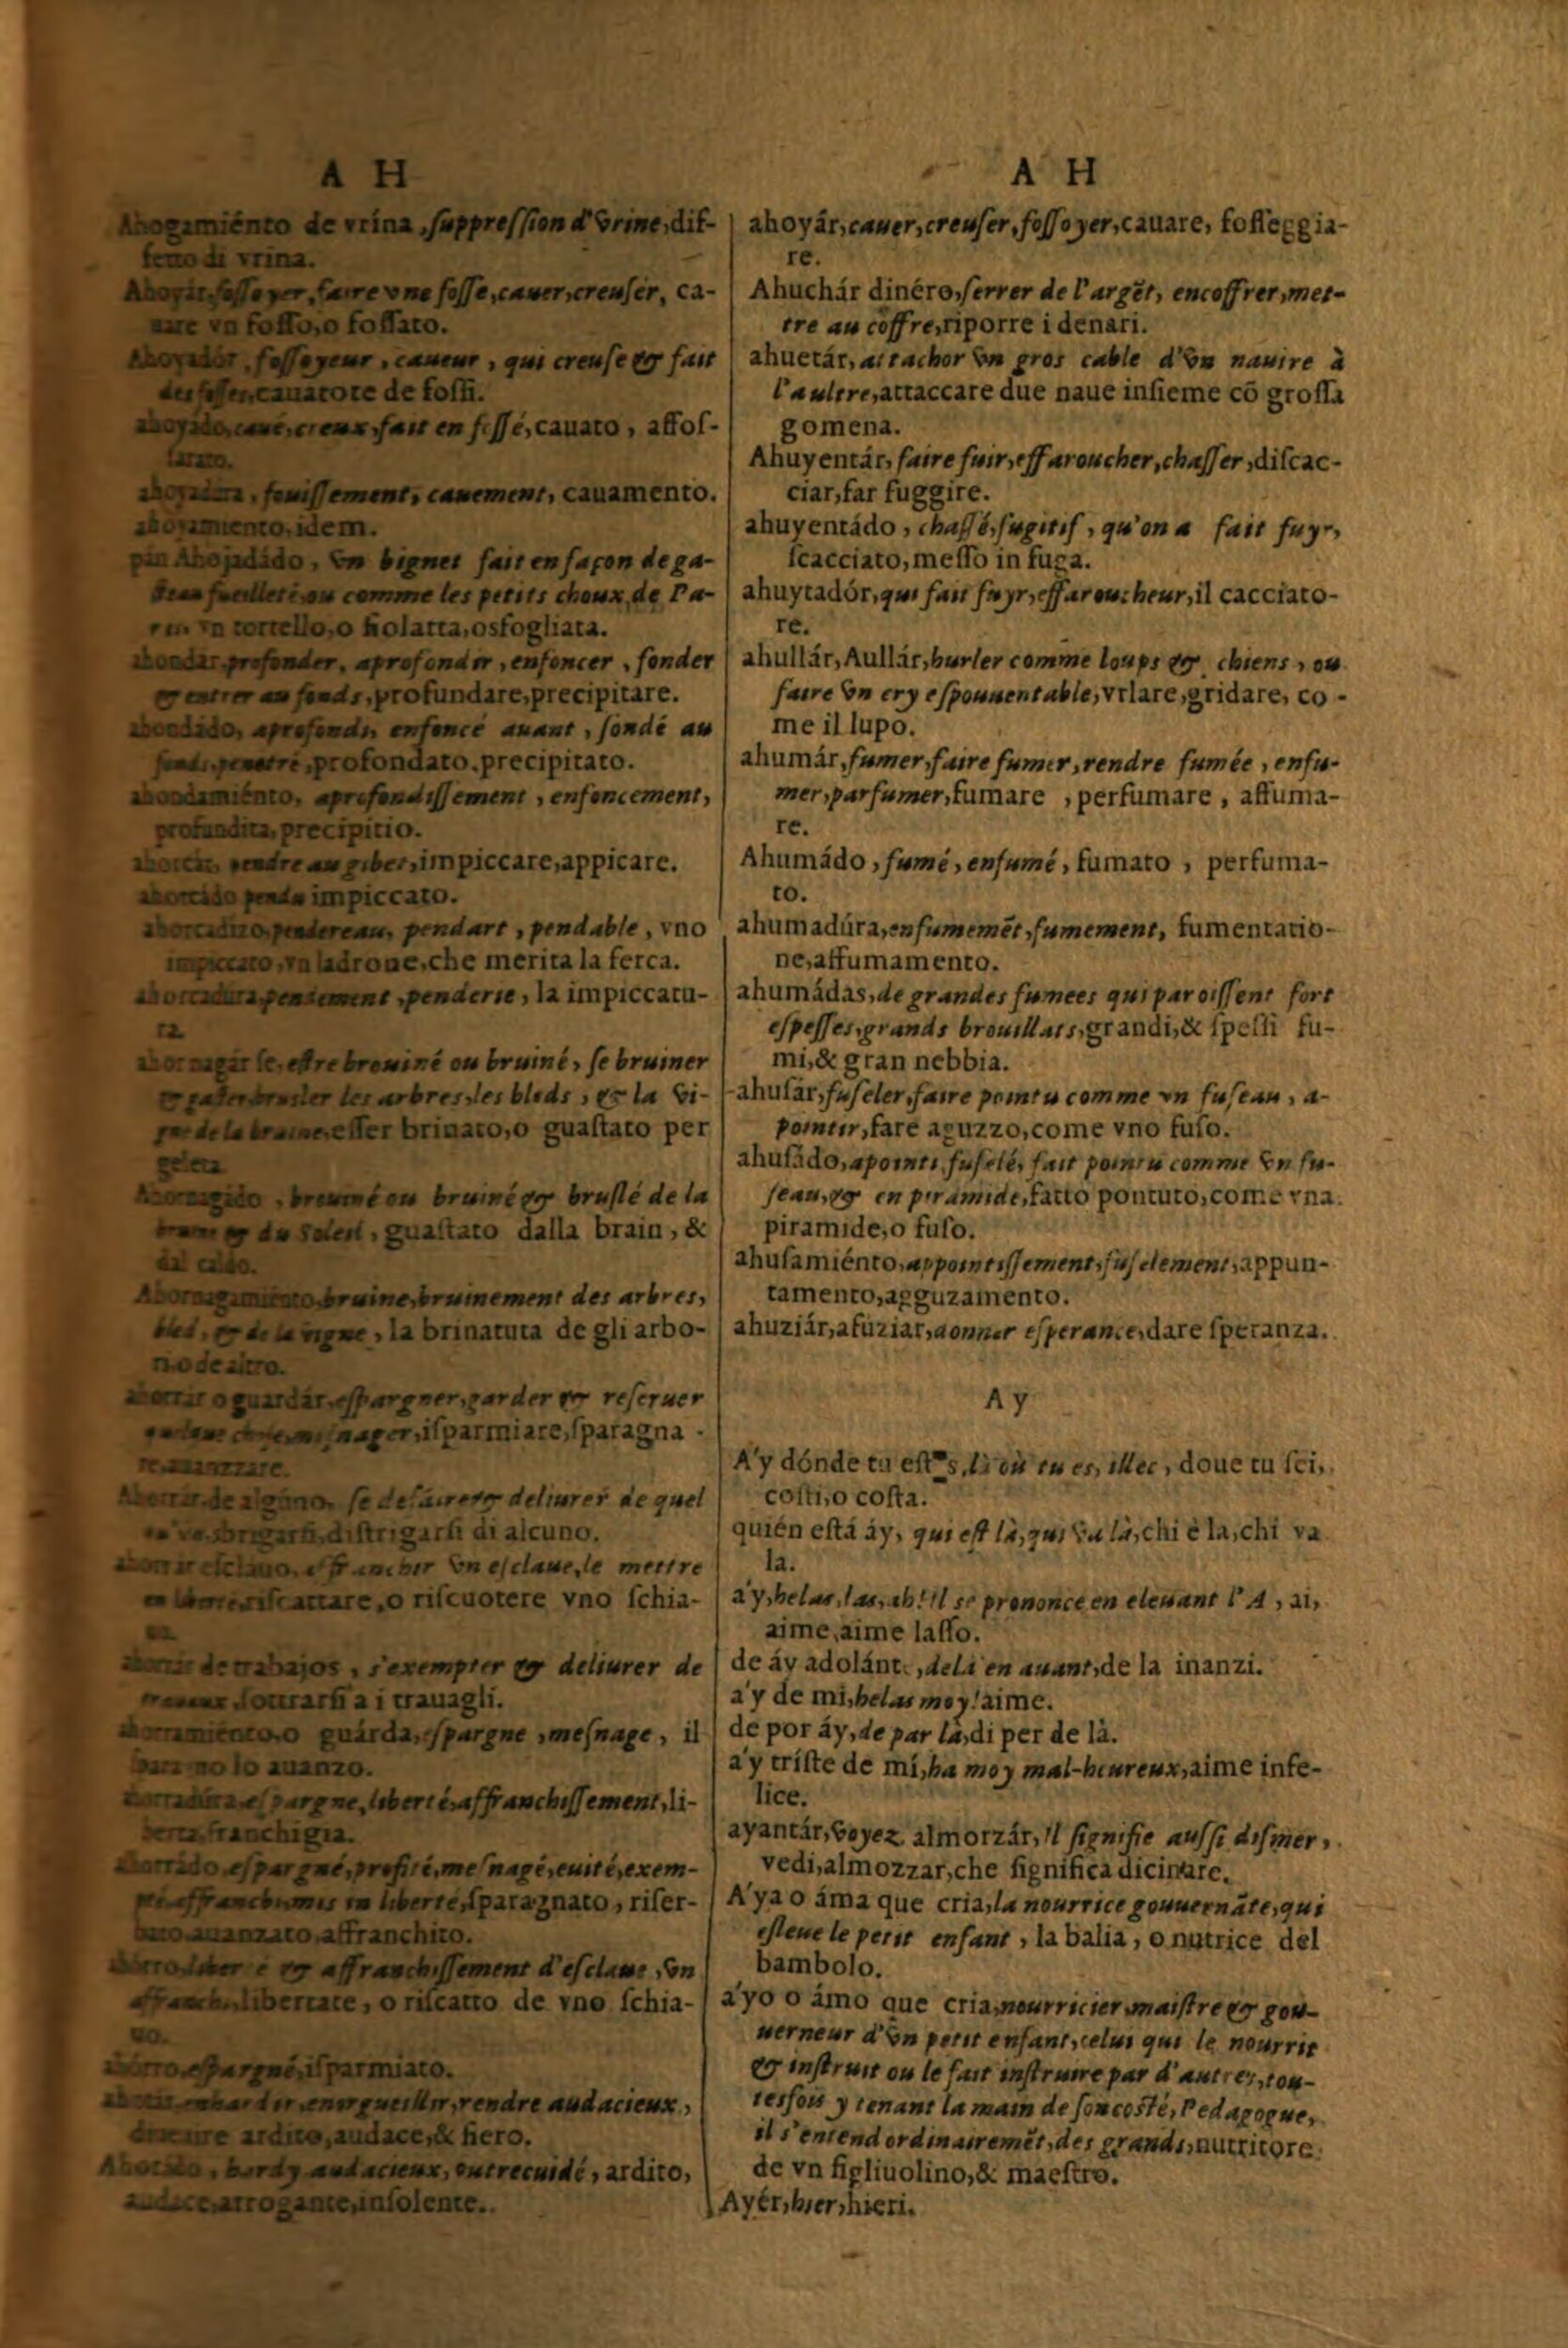 A H
Ahogamiénto de vrína, ſuppreſſion d'vrine, dif-
fetto di vrina.
foſſoyer, faire vne foſſe, cauer, creuſer, ca-
uare vn foſſo, o foſſato.
Ahoyadór, foſſoyeur, caueur, qui creuſe & fait
des foſſes, cauatore de foſſi.
ahoyádo, caué, creux, fait en foſſé, cauato, affoſ-
ſarato.
ahoyadúra, fouiſſement, cauement, cauamento.
ahoyamiento, idem.
pan Ahojaldádo, vn bignet fait en façon de ga-
ſteau fueilleté, ou comme les petits choux de Pa-
vn tortello, o fiolatta, osfogliata.
ahondár, profonder, aprofondir, enfoncer, fonder
& entrer au fonds, profundare, precipitare.
ahondádo, aprofondi, enfoncé auant, fondé au
fonds, penetré, profondato, precipitato.
ahondamiénto, aprofondiſſement, enfoncement,
profundita, precipitio.
ahorcár, pendre au gibet, impiccare, appicare.
ahorcádo pendu impiccato.
ahorcadizo, pendereau, pendart, pendable, vno
impiccato, vn ladrone, che merita la ferca.
ahorcadúra, pendement, penderie, la impiccatu-
ra.
ahornagár ſe, eſtre breuiné ou bruiné, ſe bruiner
& gaſter, bruſler les arbres, les bleds, & la vi-
gne de la bruine, eſſer brinato, o guaſtato per
geleta.
breuiné ou bruiné & bruſlé de la
bruine & du Soleil, guaſtato dalla brain, &
dal caldo.
Ahornagamiénto, bruine, bruinement des arbres,
bled, & de la vigne, la brinatuta de gli arbo-
ri o de altro.
ahorrár o guardár, eſpargner, garder & reſeruer
meſnager, iſparmiare, ſparagna -
re, auanzzare.
Ahorrár, de algúno, ſe desfaire & deliurer de quel
qu'vn, sbrigarſi, diſtrigarſi di alcuno.
ahorrár eſclauo, affranchir vn eſclaue, le mettre
en liberté, riſcattare, o riſcuotere vno ſchia-
uo.
ahorrár de trabajos, s'exempter & deliurer de
trauaux, ſottrarſi a i trauagli.
ahorramiénto, o guárda, eſpargne, meſnage, il
no lo auanzo.
ahorradúra, eſpargne, liberté, affranchiſſement, li-
berta, franchigia.
ahorrádo, eſpargné, profité, meſnagé, euité, exem-
pté, affranchi, mis en liberté, ſparagnato, riſer-
bato, auanzato, affranchito.
ahórro, liberté & affranchiſſement d'eſclaue, vn
affranchi, libertate, o riſcatto de vno ſchia-
uo.
ahórro, eſpargné, iſparmiato.
enhardir, enorgueillir, rendre audacieux,
ardito, audace, & fiero.
hardy audacieux, outrecuidé, ardito,
audace, arrogante, inſolente.
A H
ahoyár, cauer, creuſer, foſſoyer, cauare, foſſeggia-
re.
Ahuchár dinéro, ſerrer de l'argẽt, encoffrer, met-
tre au coffre, riporre i denari.
ahuetár, attachor vn gros cable d'vn nauire à
l'aultre, attaccare due naue inſieme cõ groſſa
gomena.
Ahuyentár, faire fuir, effaroucher, chaſſer, diſcac-
ciar, far fuggire.
ahuyentádo, chaſſé, fugitif, qu'on a fait fuyr,
ſcacciato, meſſo in fuga.
ahuytadór, qui fait fuyr, effaroucheur, il cacciato-
re.
ahullár, Aullár, hurler comme loups & chiens, ou
faire vn cry eſpouuentable, vrlare, gridare, co -
me il lupo.
ahumár, fumer, faire fumer, rendre fumée, enfu-
mer, parfumer, fumare, perfumare, affuma-
re.
Ahumádo, fumé, enfumé, fumato, perfuma-
to.
ahumadúra, enfumemẽt, fumement, fumentatio-
ne, affumamento.
ahumádas, de grandes fumees qui paroiſſent fort
eſpeſſes, grands brouillats, grandi, & ſpeſſi fu-
mi, & gran nebbia.
ahuſár, fuſeler, faire pointu comme vn fuſeau, a-
pointir, fare aguzzo, come vno fuſo.
ahuſádo, apointi, fuſelé, fait pointu comme vn fu-
ſeau, & en piramide, fatto pontuto, come vna
piramide, o fuſo.
ahuſamiénto, appointiſſement, fuſelement, appun-
tamento, agguzamento.
ahuziár, afuziar, donner eſperance, dare ſperanza.
A y
A'y dónde tu eſtas, là où tu es, illec, doue tu ſei,
coſti, o coſta.
quién eſtá áy, qui eſt là, qui va là, chi è la, chi va
la.
a'y, helas, las, ah! il ſe prononce en eleuant l'A, ai,
aime, aime laſſo.
de áy adelánte, delà en auant, de la inanzi.
a'y de mi, helas moy! aime.
de por áy, de par là, di per de là.
a'y tríſte de mí, ha moy mal-heureux, aime infe-
lice.
ayantár, voyez almorzár, il ſignifie auſſi diſner,
vedi, almozzar, che ſignifica dicinare.
A'ya o áma que cria, la nourrice gouuernãte, qui
eſleue le petit enfant, la balia, o nutrice del
bambolo.
a'yo o ámo que cria, nourricier, maiſtre & gou-
uerneur d'vn petit enfant, celui qui le nourrit
& inſtruit ou le fait inſtruire par d'autres, tou-
tesfois y tenant la main de ſon coſté, Pedagogue,
il s'entend ordinairemẽt, des grands, nutritore
de vn figliuolino, & maeſtro.
Ayér, hier, hieri.